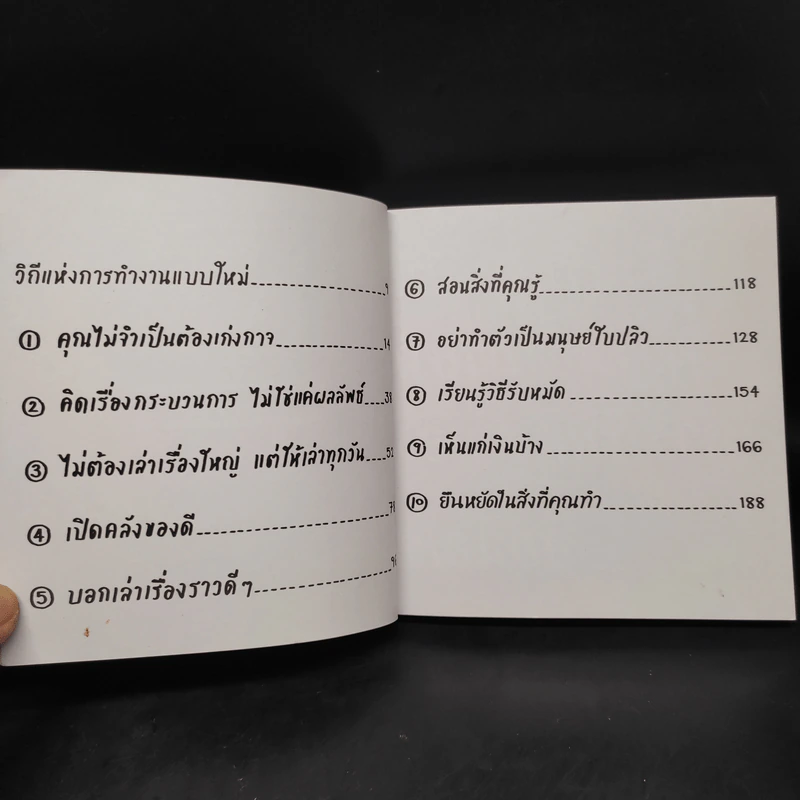 วิถีแห่งการทำงานแบบใหม่ 9
① คุณไม่จำเป็นต้องเก่งกาจ 14
② คิดเรื่องกระบวนการ ไม่ใช่แค่ผลลัพธ์ 38
③ ไม่ต้องเล่าเรื่องใหญ่ แต่ให้เล่าทุกวัน 52
④ เปิดคลังของดี
⑤ บอกเล่าเรื่องราวดีๆ
⑥ สอนสิ่งที่คุณรู้ 118
⑦ อย่าทำตัวเป็นมนุษย์ใบปลิว 128
⑧ เรียนรู้วิธีรับหมัด 154
⑨ เห็นแก่เงินบ้าง 166
⑩ ยืนหยัดในสิ่งที่คุณทำ 188